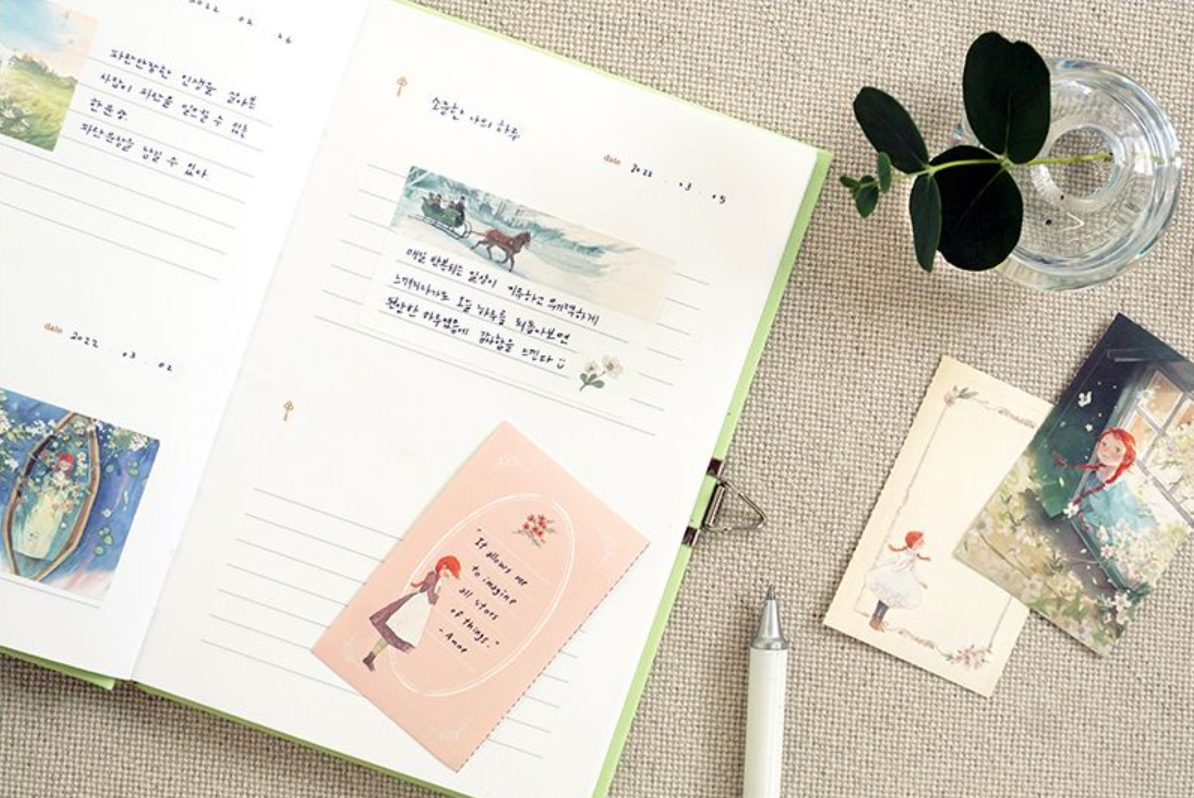 2022 . 02 . 26
파란만장한 인생을 살아본
사람이 파란을 일으킬 수 있는
한문장
파란문장을 남길 수 있다
date 2022 . 03 . 02
소중한 나의 하루
date 2022 . 03 . 05
매일 반복되는 일상이 지루하고 무기력하게
느껴지다가도 오늘 하루를 되돌아보면
편안한 하루였음에 감사함을 느낀다
"It allows me
to imagine
all sorts
of things."
- Anne